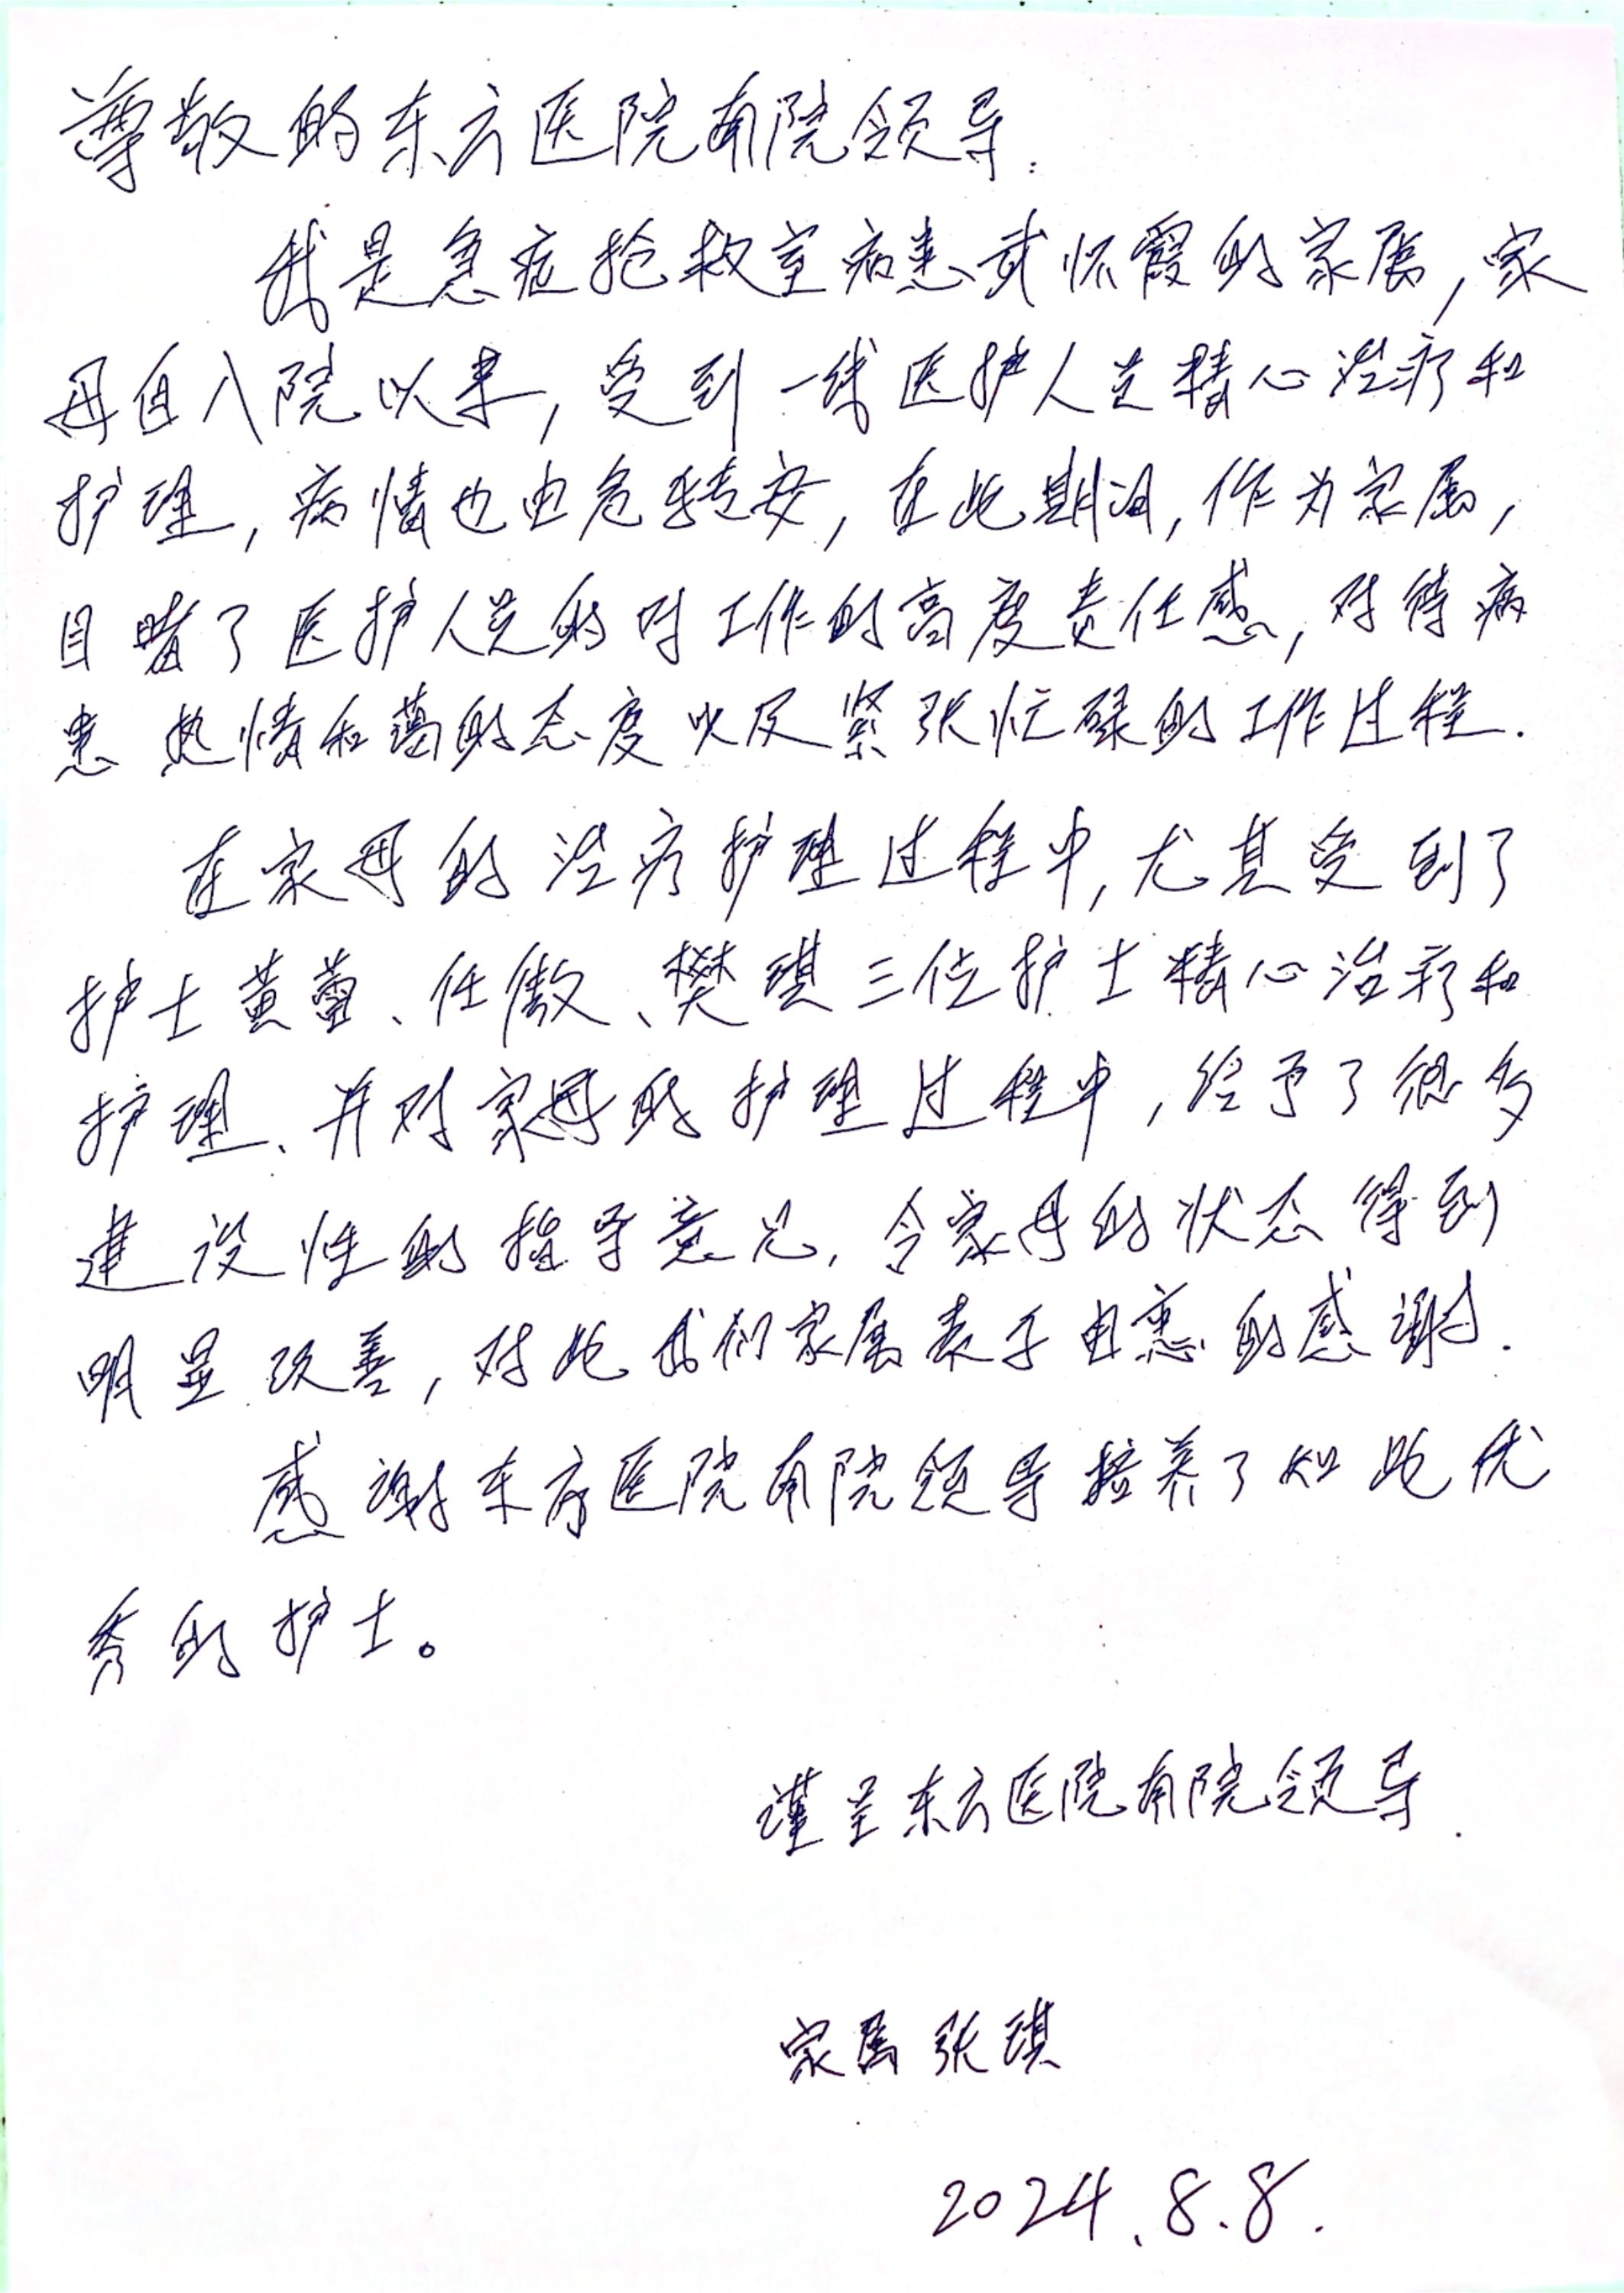 尊敬的东方医院南院领导：
我是急症抢救室病患武怀霞的家属，家
母自入院以来，受到一线医护人员精心治疗和
护理，病情也由危转安，在此期间，作为家属，
目睹了医护人员的对工作的高度责任感，对待病
患热情和蔼的态度以及紧张忙碌的工作过程.
在家母的治疗护理过程中，尤其受到了
护士黄蕾、任傲、樊琪三位护士精心治疗和
护理、并对家母的护理过程中，给予了很多
建设性的指导意见，令家母的状态得到
明显改善，对此我们家属表示由衷的感谢.
感谢东方医院南院领导培养了如此优
秀的护士。
谨呈东方医院南院领导.
家属 张琪
2024.8.8.